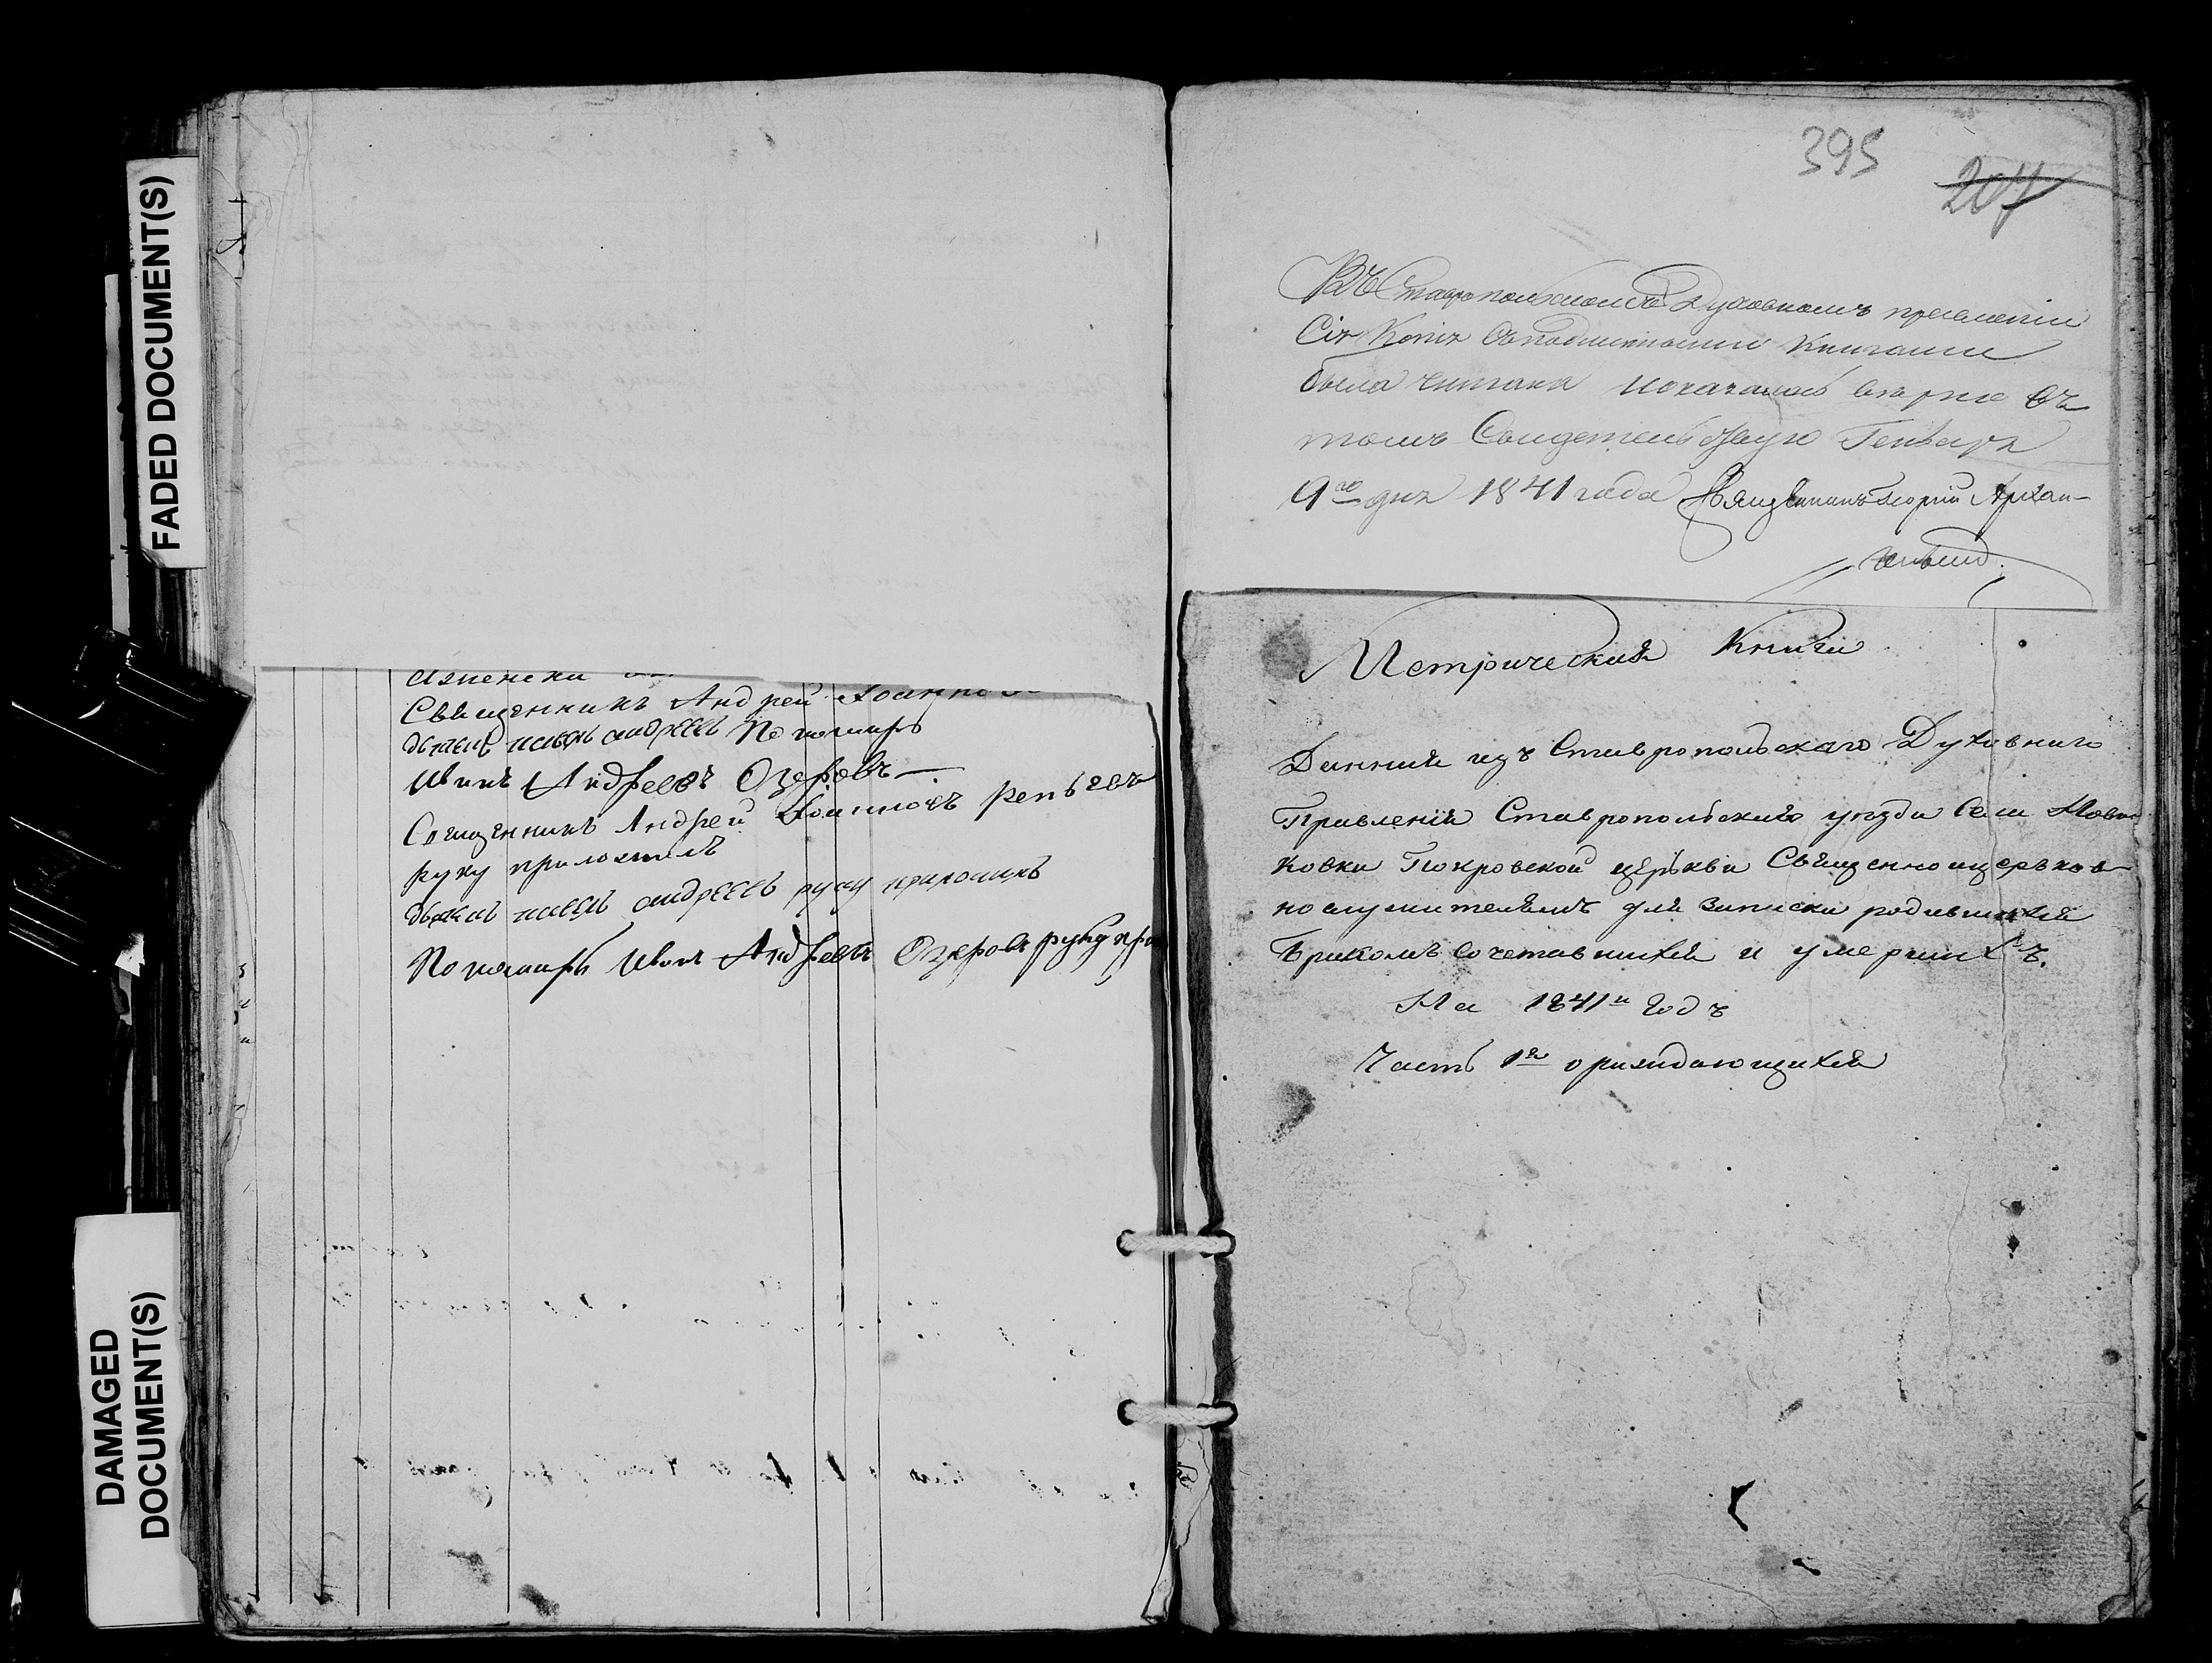 FADED DOCUMENT(S)
DAMAGED DOCUMENT(S)
Священникъ Андрей
андреевъ Пономарь
Иванъ Андреевъ Озеровъ
Священникъ Андрей Іоанновъ Репьевъ
руку приложилъ
андреевъ руку приложилъ
Пономарь Иванъ Андреевъ Озеровъ руку при
395
207
Въ Ставропольскомъ Духовномъ правленіи
Сія Копія съ подлинными Книгами
была читана и оказалась верне въ
томъ Свидетельствую Генваря
9го дня 1841 года Священникъ Георгий Архан-
гельский
Метрическия Книги
Данния изъ Ставропольскаго Духовнаго
Правленія Ставропольскаго уезда Села
ковки Покровской церькви Священноцерьков-
нослужителямъ для записки родившихся
Бракомъ Сочетавшихся и умершихъ.
На 1841й Годъ
Часть 1я о раждающихся